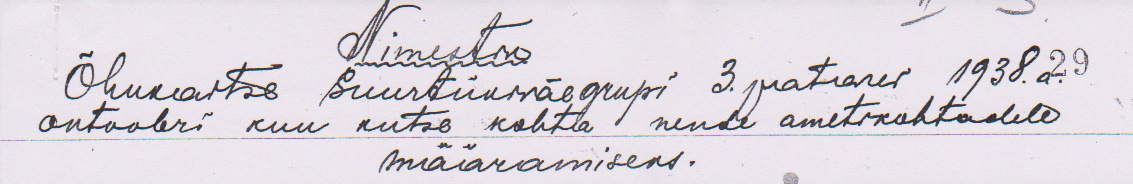 Nimestik
Õhukaitse Suurtükiväegrupi 3. patarei 1938.a. 29
oktoobri kuu kutse kohta nende ametikohtadele
määramiseks.